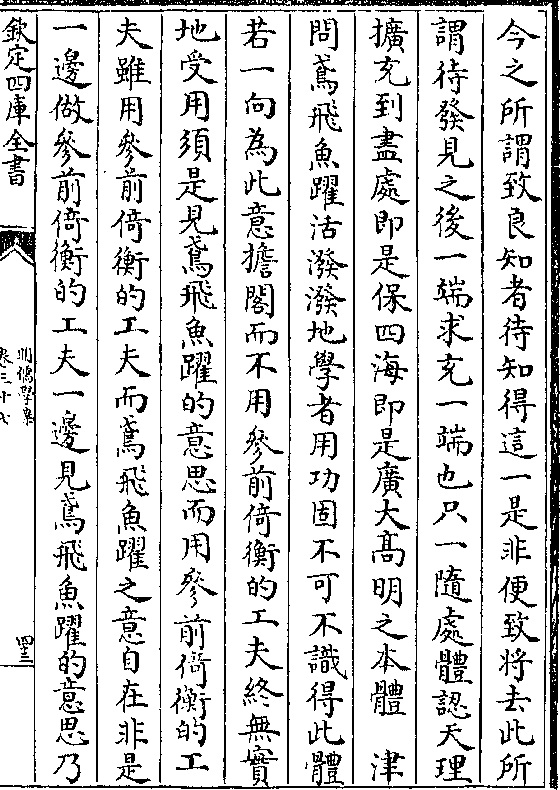 今之所謂致良知者待知得這一是非便致將去此所
謂待發見之後一端求充一端也只一隨處體認天理
擴充到盡處即是保四海即是廣大髙明之本體　津
問鳶飛魚躍活潑潑地學者用功固不可不識得此體
若一向為此意擔閣而不用參前倚衡的工夫終無實
地受用須是見鳶飛魚躍的意思而用參前倚衡的工
夫雖用參前倚衡的工夫而鳶飛魚躍之意自在非是
一邊做參前倚衡的工夫一邊見鳶飛魚躍的意思乃
欽定四庫全書
明儒學案
卷三十七
四三